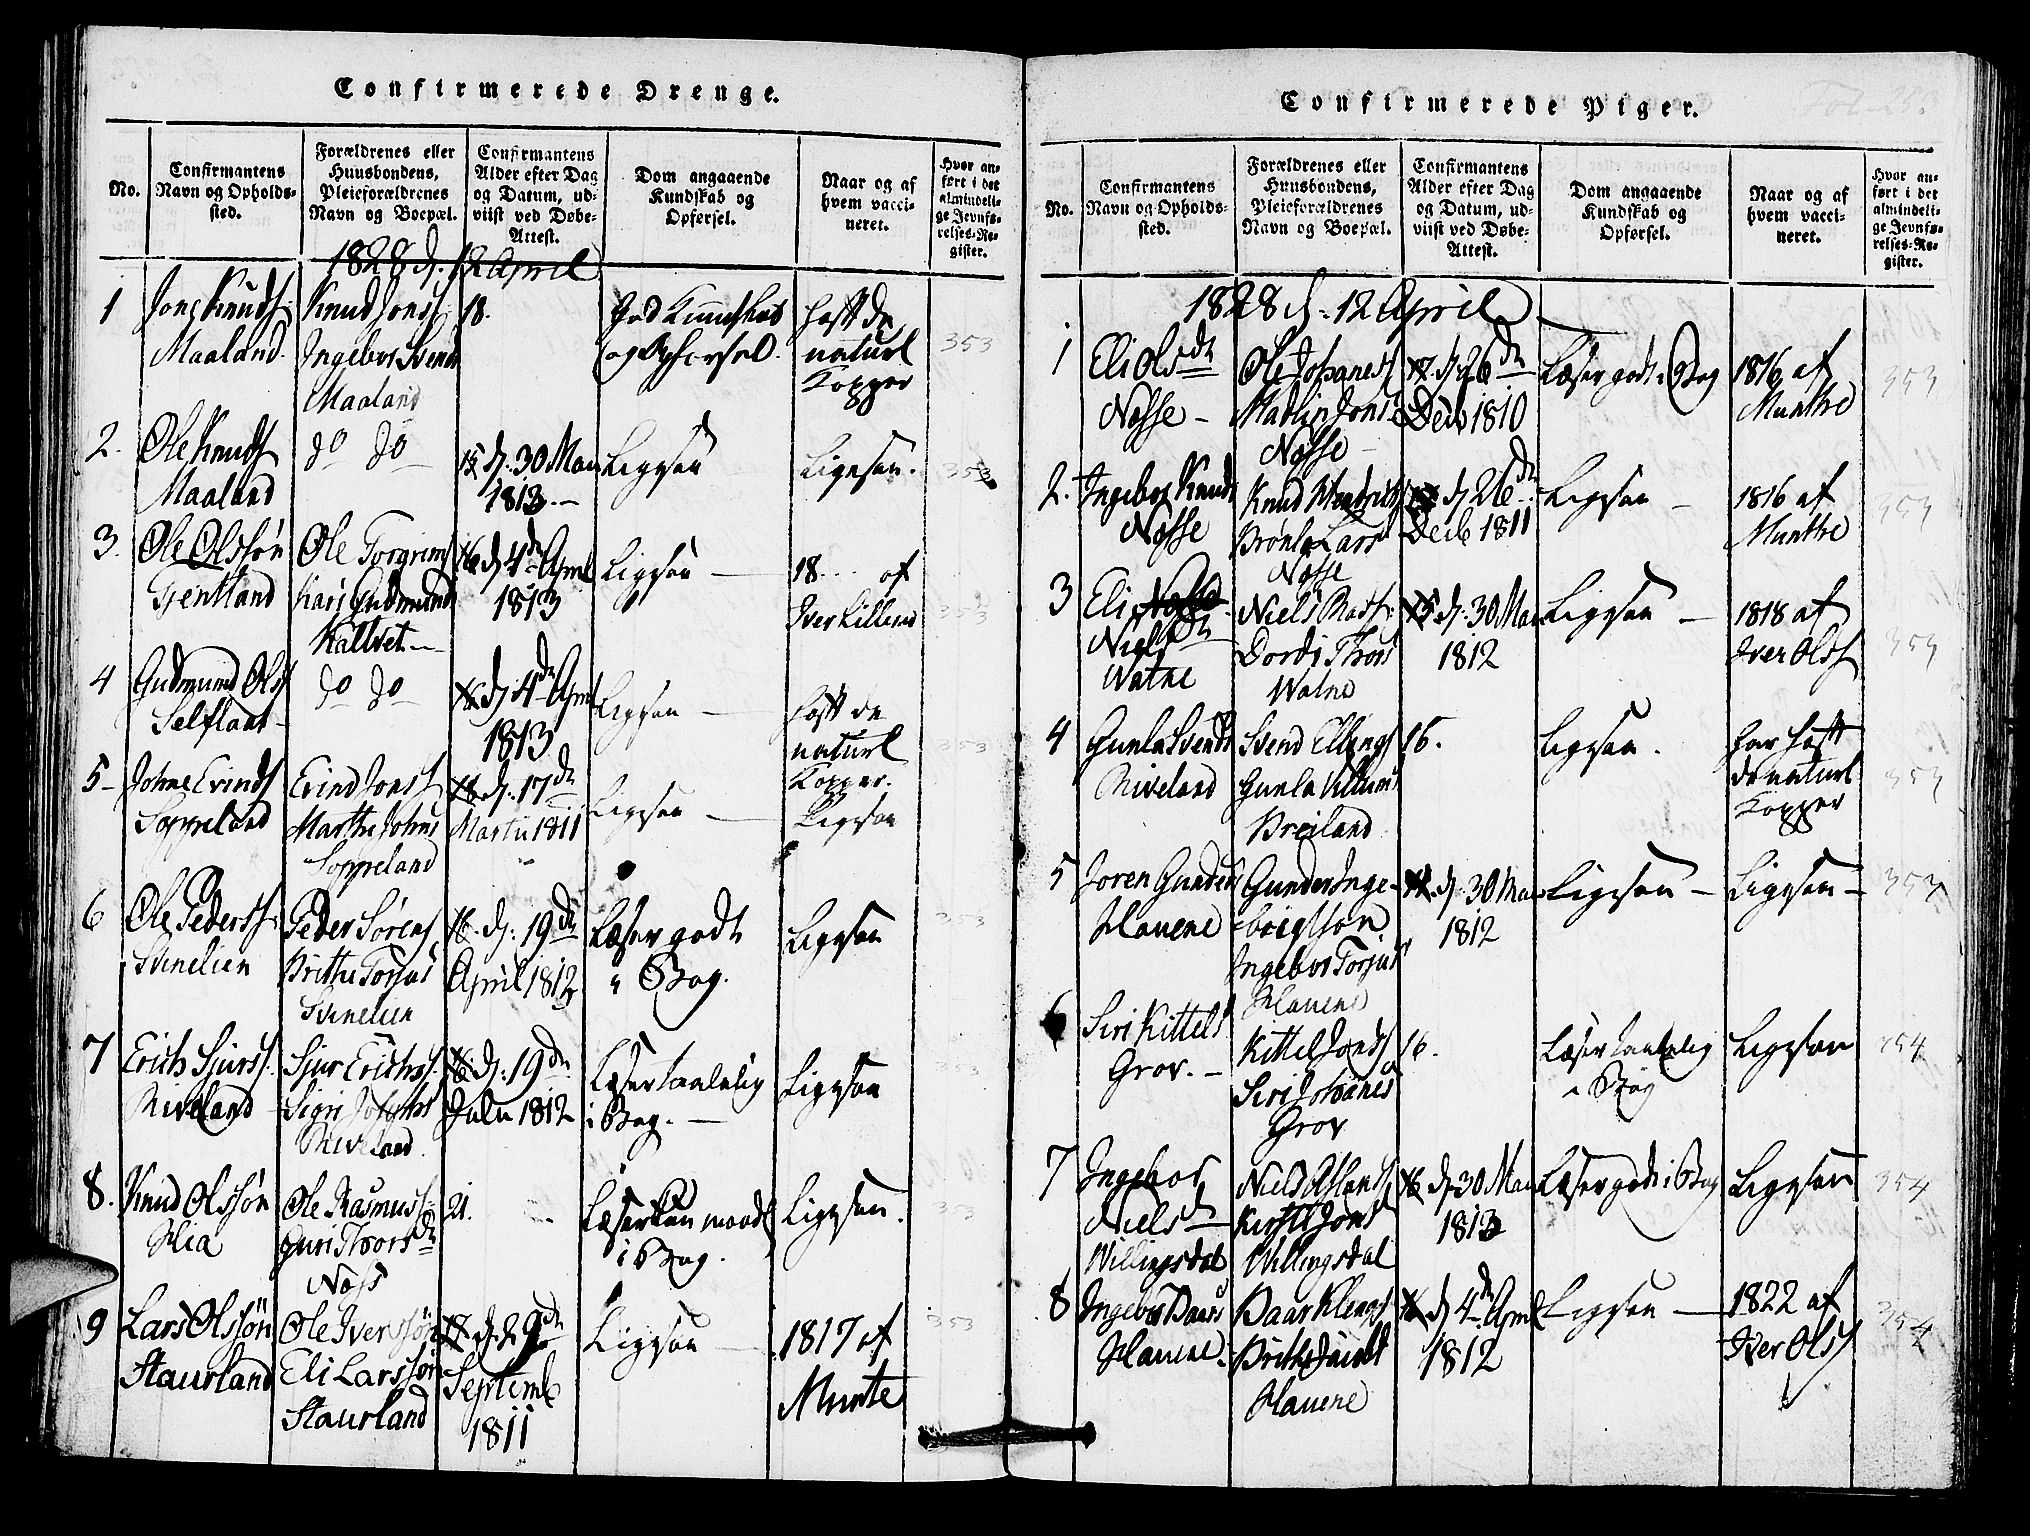 Confirmerede Drenge.
No.
Confirmantens
Navn og Opholds-
sted.
Forældrenes eller
Huusbondens,
Pleieforældrenes
Navn og Boepæl.
Confirmantens
Alder efter Dag
og Datum, ud-
viist ved Døbe-
Attest.
Dom angaaende
Kundskab og
Opførsel.
Naar og af
hvem vacci-
neret.
Hvor an-
ført i det
almindeli-
ge Jevnfø-
relses-Re-
gister.
1828 d. 12 April
1
Jons Knuds.
Maaland.
Knud Jons
Ingebor Svend
Maaland
18.
God Kundskab
og Opførsel.
haft de
naturl
Kopper
353
2.
Ole Knuds
Maaland
do do
15 d. 30 Mai
1813.
Ligesaa
Ligesaa.
353
3.
Ole Olssøn
Tjentland
Ole Torgrims
Kari Gudmunds
Kaltvet.
16 d 4de April
1813
Ligesaa
18... af
Iver
353
4
Gudmund Ols
Selfland
do do
16 d 4de April
1813
Ligesaa
haft de
naturl
Kopper.
353
5
Johne Evinds
Soppeland
Evind Jons
Marthe Johns
Soppeland
18 d. 17de
Martii 1811
Ligesaa
Ligesaa
6
Ole Peders
Svinelien
Peder Sørens
Brithe Torjus
Svinelien
16. d. 19de
April 1812
Læser godt
i Bog.
Ligesaa
353
7
Erich Sjurs
Riveland
Sjur Erichs.
Sigri Josephs
Riveland
16. d. 19de
Julu 1812
Læser taalelig
i Bog.
Ligesaa
353
8.
Knud Olssøn
Hia
Ole Rasmus
Guri Thorsdt
Noss
21.
Læser kun maadl
i Bog.
Ligesaa.
353
9
Lars Olssøn
Staurland
Ole Iverssøn
Eli Larssøn
Staurland
17 d. 29de
Septemb
1811
Ligesaa
1817 af
Munte
353
Confirmerede Piger.
No.
Confirmantens
Navn og Opholds-
sted.
Forældrenes eller
Huusbondens,
Pleieforældrenes
Navn og Boepæl.
Confirmantens
Alder efter Dag
og Datum, ud-
viist ved Døbe-
Attest.
Dom angaaende
Kundskab og
Opførsel.
Naar og af
hvem vacci-
neret.
Hvor an-
ført i det
almindeli-
ge Jevnfø-
relses-Re-
gister.
1828 d. 12 April
1
Eli Olsdt
Nosse
Ole Johanes
Madlin Jons
Nosse
17. d. 26de
Decb 1810
Læser godt i Bog
1816 af
Munthe
353
2.
Ingebor Knuds
Nosse
Knud
Brønla Lars
Nosse
d 26de
Decb 1811
Ligesaa
1816 af
Munthe
353
3
Eli
Nielsdt
Watne
Niels Mads.
Dordi Thors
Watne
15 d. 30 Mai
1812
Ligesaa
1818 af
Iver Ols
353
4
Gunla Svends
Riveland
Svend Ellings
Gunla Villums
Breiland
16.
Ligesaa.
har haft
de naturl
Kopper
353
5
Joren Gunders
Hauene
Gunder Inge-
brigtsøn
Ingebor Torjus
Hauene
d. 30 Mai
1812
Ligesaa
Ligesaa
353
6
Siri Kittels
Grov.
Kittel Jons
Siri Johanes
Grov
16.
Læser taalelig
i Bog
Ligesaa
354
7
Ingebor
Nielsdt
Willingsdal
Niels Aslands
Kirsti Jons
Willingsdal
16 d 30 Mai
1813
Læser godt i Bog
Ligesaa
354
8
Ingebor Baars
Hauene.
Baar Klengs
Brithe
Hauene
16 d 4de April
1812
Ligesaa
1822 af
Iver Ols
354